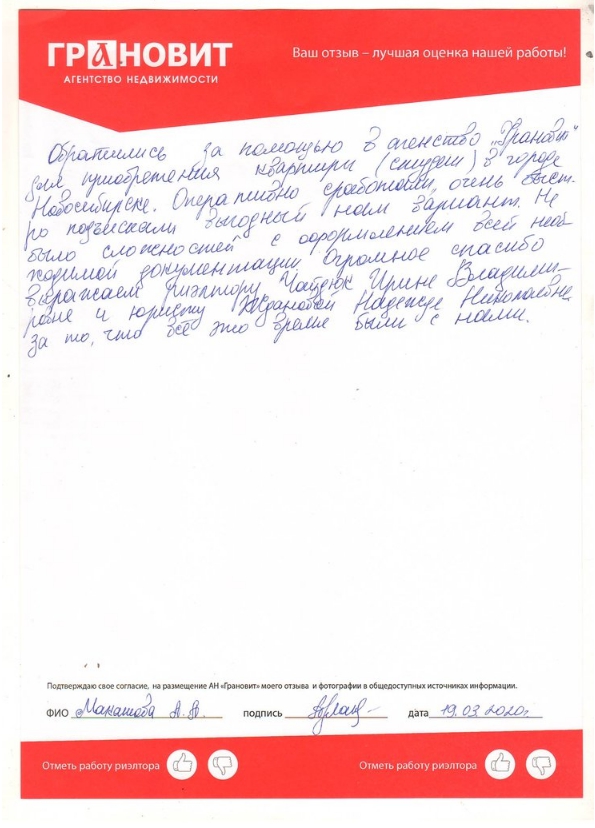 ГРАНОВИТ
АГЕНТСТВО НЕДВИЖИМОСТИ
Ваш отзыв – лучшая оценка нашей работы!
Обратились за помощью в агенство „Грановит“
для приобретения квартиры (студии) в городе
Новосибирске. Оперативно сработали, очень быст-
ро подыскали выгодный нам вариант. Не
было сложностей с оформлением всей необ
ходимой документации. Огромное спасибо
выражаем риэлтору Чайдюк Ирине Владими-
ровне и юристу Ждановой Надежде Николаевне
за то, что всё это время были с нами.
Подтверждаю свое согласие, на размещение АН «Грановит» моего отзыва и фотографии в общедоступных источниках информации.
ФИО А.А. подпись дата 19.03.2020г.
Отметь работу риэлтора Отметь работу риэлтора